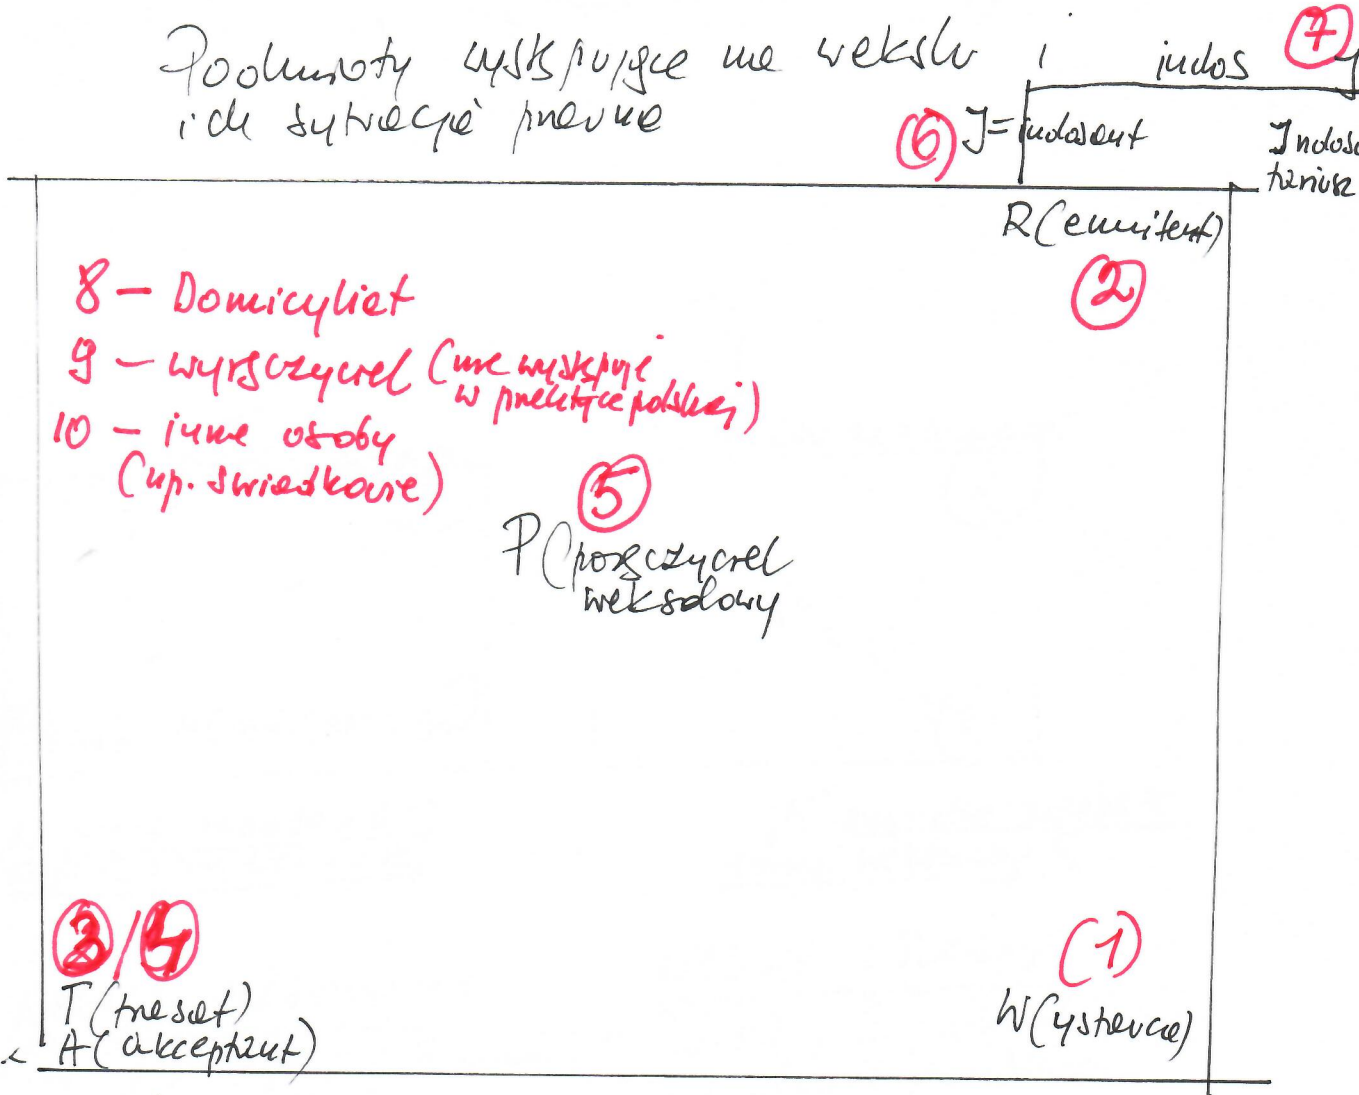 Podmioty występujące na wekslu i
ich sytuacja prawna
indos 7
6 I = indosant
Indosa
tariusz
R(emitent)
2
8 – Domicyliat
9 – wyręczyciel (nie występuje
w praktyce polskiej)
10 – inne osoby
(np. świadkowie)
5
P (poręczyciel
wekslowy
3/4
T (trasat)
A (akceptant)
(1)
W(ystawca)